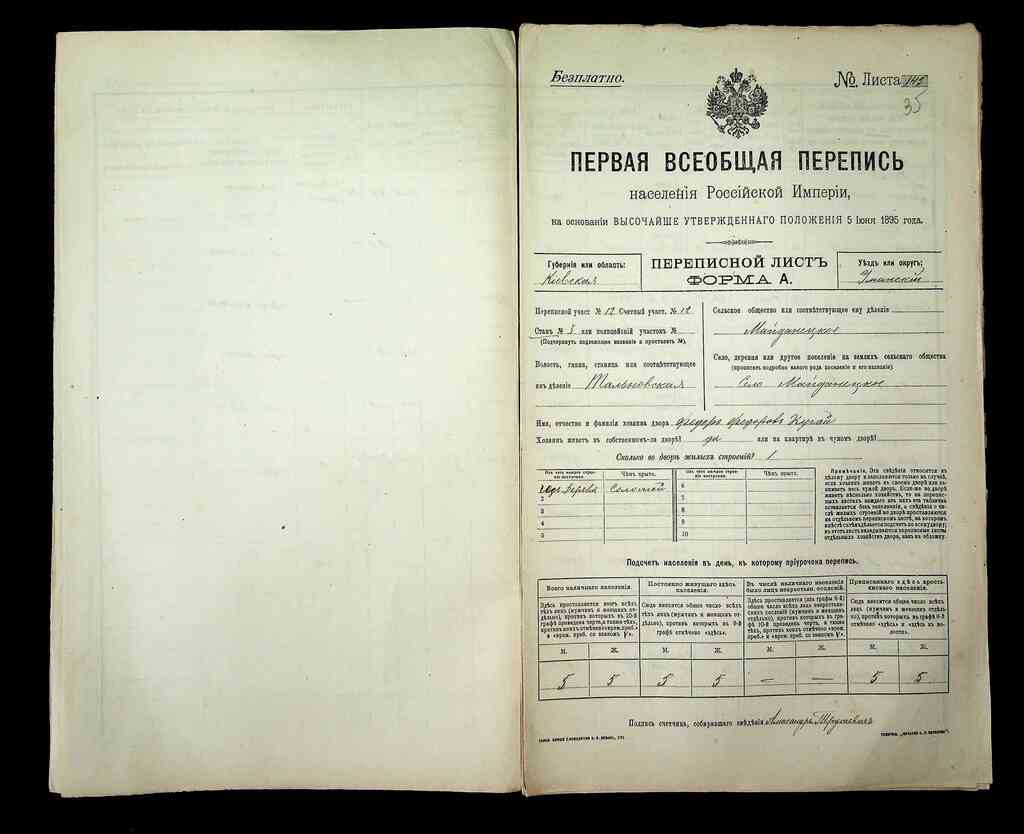 Безплатно.
№ Листа 142
35
ПЕРВАЯ ВСЕОБЩАЯ ПЕРЕПИСЬ
населенія Россійской Имперіи,
на основаніи ВЫСОЧАЙШЕ УТВЕРЖДЕННАГО ПОЛОЖЕНІЯ 5 Іюня 1895 года.
Губернія или область:
Кіевская
ПЕРЕПИСНОЙ ЛИСТЪ
ФОРМА А.
Уѣздъ или округъ:
Уманскій
Переписной участ № 12 Счетный участ. № 12
Станъ № 5 или полицейскій участокъ №
(Подчеркнуть подлежащее названіе и проставить №).
Волость, гмина, станица или соотвѣтствующее
имъ дѣленіе Тальновская
Сельское общество или соотвѣтствующее ему дѣленіе
Майданецкое
Село, деревня или другое поселеніе на земляхъ сельскаго общества
(прописать подробно какого рода поселеніе и его названіе)
Село Майданецкое
Имя, отчество и фамилія хозяина двора Федоръ Федоровъ Кугай
Хозяинъ живетъ въ собственномъ-ли дворѣ? да или на квартирѣ въ чужомъ дворѣ?
Сколько во дворѣ жилыхъ строеній? 1
Изъ чего каждое строеніе построено.
Чѣмъ крыто.
Изъ чего каждое строеніе построено.
Чѣмъ крыто.
1 изъ дерева Соломой 6
2 7
3 8
4 9
5 10
Примѣчаніе. Эти свѣдѣнія относятся къ
цѣлому двору и заполняются только въ случаѣ,
если хозяинъ живетъ въ своемъ дворѣ или занимаетъ
весь чужой дворъ. Если-же во дворѣ
живетъ нѣсколько хозяйствъ, то на переписныхъ
листахъ каждаго изъ нихъ эта табличка
оставляется безъ заполненія, а свѣдѣнія о числѣ
жилыхъ строеній во дворѣ проставляются
на отдѣльномъ переписномъ листѣ, на которомъ
вмѣстѣ съ тѣмъ дѣлается подсчетъ по всему двору;
въ этотъ листъ вкладываются переписные листы
отдѣльныхъ хозяйствъ двора, какъ въ обложку.
Подсчетъ населенія въ день, къ которому пріурочена перепись.
Всего наличнаго населенія.
Постоянно живущаго здѣсь населенія.
Въ числѣ наличнаго населенія было лицъ некрестьян. сословій.
Приписаннаго здѣсь крестьянскаго населенія.
Здѣсь проставляется итогъ всѣхъ тѣхъ лицъ (мужчинъ и женщинъ отдѣльно), противъ которыхъ въ 10-й графѣ проведена черта, а также тѣхъ, противъ коихъ отмѣчено «врем. преб.» и «врем. преб. со знакомъ V».
Сюда вносится общее число всѣхъ тѣхъ лицъ (мужчинъ и женщинъ отдѣльно), противъ которыхъ въ 9-й графѣ отмѣчено «здѣсь».
Здѣсь проставляется (изъ графы 6-й) общее число всѣхъ лицъ некрестьянскихъ сословій (мужчинъ и женщинъ отдѣльно), противъ которыхъ въ графѣ 10-й проведена черта, а также тѣхъ, противъ коихъ отмѣчено «врем. преб.» и «врем. преб. со знакомъ V».
Сюда вносится общее число всѣхъ лицъ (мужчинъ и женщинъ отдѣльно), противъ которыхъ въ графѣ 8-й отмѣчено «здѣсь» и «здѣсь въ волости».
М. Ж. М. Ж. М. Ж. М. Ж.
5 5 5 5 — — 5 5
Подпись счетчика, собиравшаго свѣдѣнія Александръ